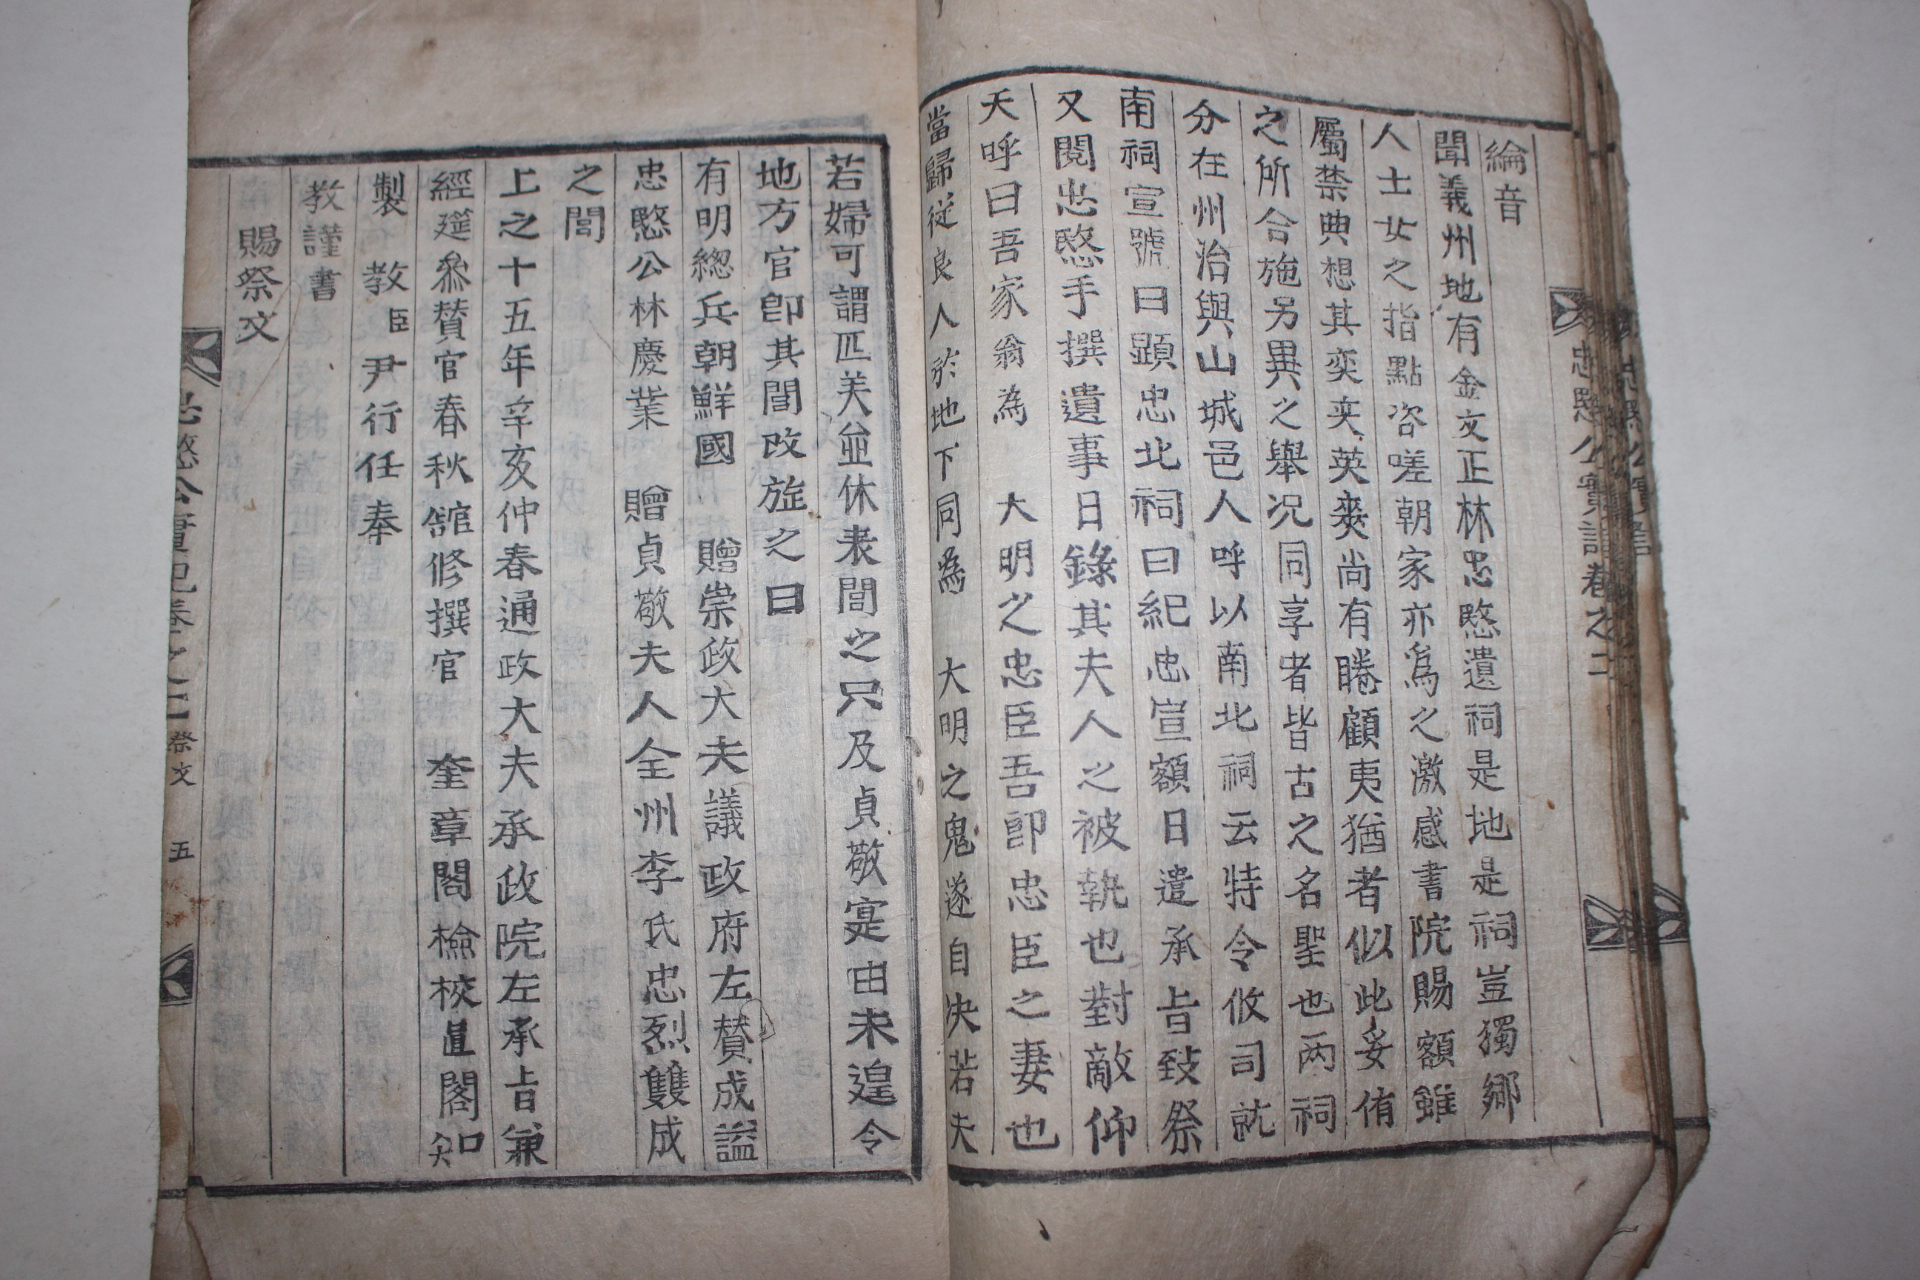 忠愍公實記卷之二
綸音
聞義州地有金文正林忠愍遺祠是地是祠豈獨鄉
人士女之指點咨嗟朝家亦爲之激感書院賜額雖
屬禁典想其奕奕英爽尚有睠顧夷猶者似此妥侑
之所合施另異之舉况同享者皆古之名聖也两祠
分在州治與山城邑人呼以南北祠云特令攸司就
南祠宣號曰顯忠北祠曰紀忠宣額日遣承旨致祭
又閱忠愍手撰遺事日錄其夫人之被執也對敵仰
天呼曰吾家翁為 大明之忠臣吾卽忠臣之妻也
當歸從良人於地下同為 大明之鬼遂自决若夫
若婦可謂匹美並休表閭之只及貞敬寔由未遑令
地方官卽其閭改旌之曰
有明緫兵朝鮮國 贈崇政大夫議政府左贊成謚
忠愍公林慶業 贈貞敬夫人全州李氏忠烈雙成
之閭
上之十五年辛亥仲春通政大夫承政院左承旨兼
經筵叅贊官春秋舘修撰官 奎章閣檢校直閣知
製 教臣尹行任奉
教謹書
賜祭文
忠愍公實記卷之二 祭文 五